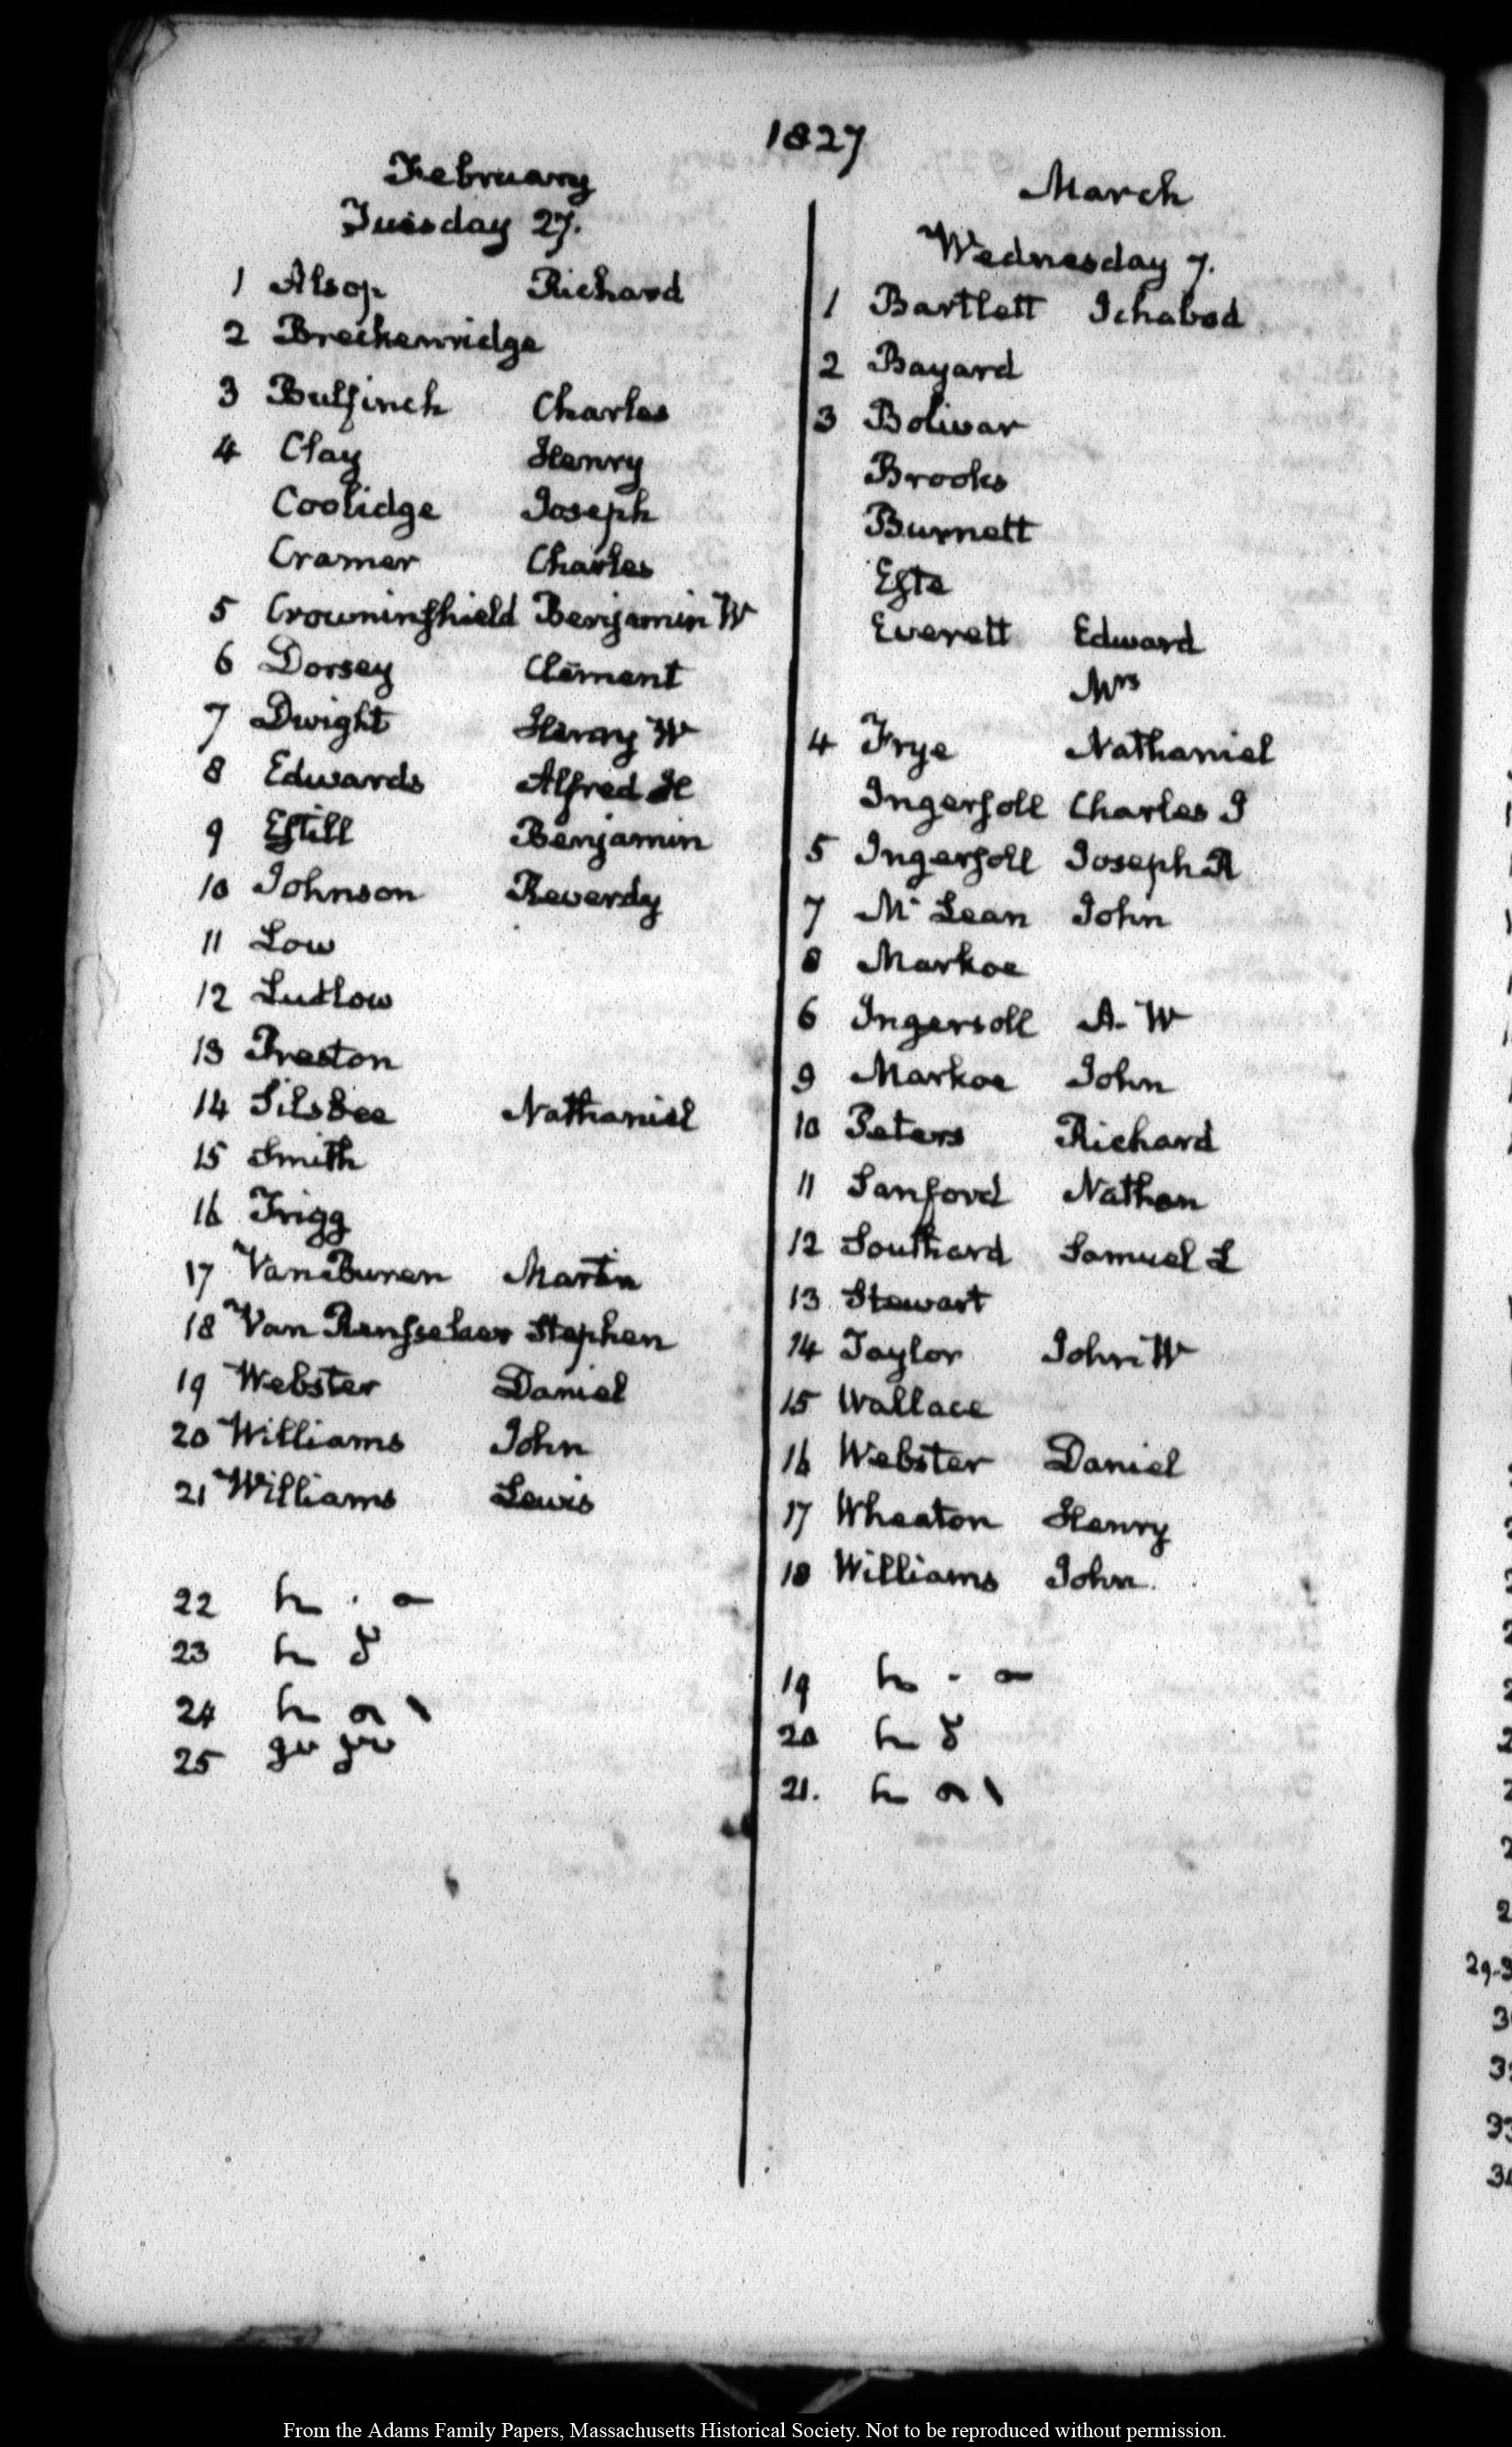 1827
February
Tuesday 27.
1 Alsop Richard
2 Breckenridge
3 Bulfinch Charles
4 Clay Henry
Coolidge Joseph
Cramer Charles
5 Crowninſhield Benjamin W
6 Dorsey Clement
7 Dwight Henry W
8 Edwards Alfred H
9 Eſtill Benjamin
10 Johnson Reverdy
11 Low
12 Ludlow
13 Preston
14 Silsbee Nathaniel
15 Smith
16 Trigg
17 Van Buren Martin
18 Van Renſselaer Stephen
19 Webster Daniel
20 Williams John
21 Williams Lewis
22
23
24
25
March
Wednesday 7.
1 Bartlett Ichabod
2 Bayard
3 Bolivar
Brooks
Burnett
Eſte
Everett Edward
Mrs
4 Frye Nathaniel
Ingerſoll Charles J
5 Ingerſoll Joseph R
7 Mc Lean John
8 Markoe
6 Ingersoll A. W
9 Markoe John
10 Peters Richard
11 Sanford Nathan
12 Southard Samuel L
13 Stewart
14 Taylor John W
15 Wallace
16 Webster Daniel
17 Wheaton Henry
18 Williams John.
19
20
21.
29-3
From the Adams Family Papers, Massachusetts Historical Society. Not to be reproduced without permission.